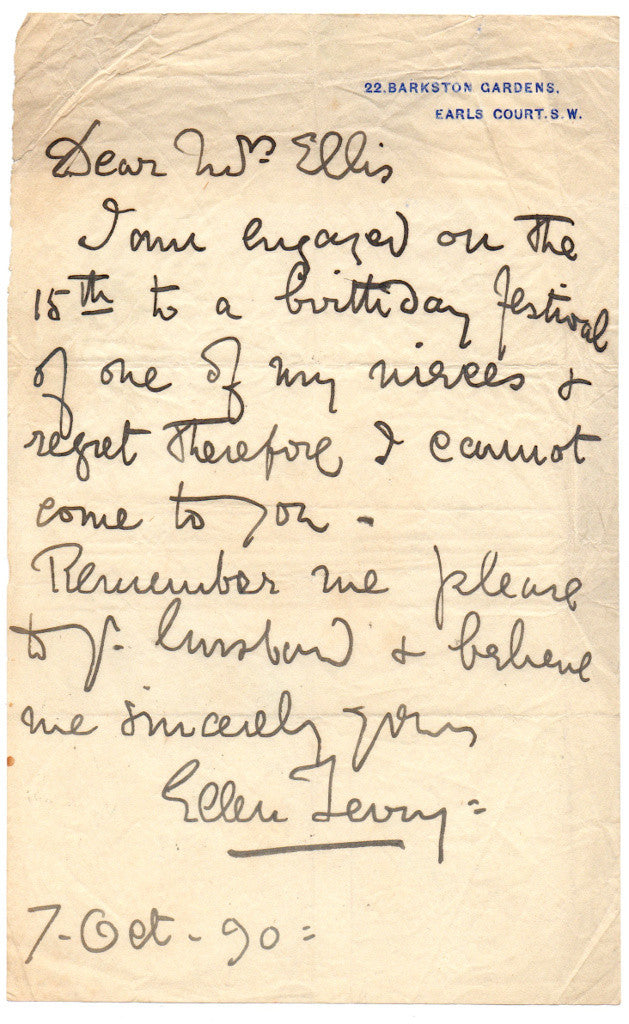 22. BARKSTON GARDENS.
EARLS COURT. S.W.
Dear Mrs Ellis
I am engaged on the
15th to a birthday festival
of one of my nieces &
regret therefore I cannot
come to you -
Remember me please
to yr. husband & believe
me sincerely yours
Ellen Terry =
7 - Oct - 90 =